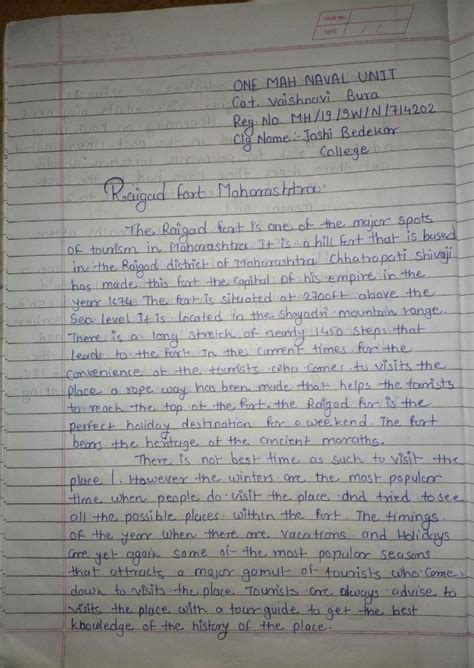 PAGE No.
DATE / /
ONE MAH NAVAL UNIT
Cat. Vaishnavi Bura
Reg. No MH/19/SW/N/714202
Clg Name:- Joshi Bedekar
College
Raigad fort Maharashtra
The Raigad fort is one of the major spots
of tourism in Maharashtra. It is a hill fort that is based
in the Raigad district of Maharashtra Chhatrapati shivaji
has made this fort the capital of his empire in the
year 1674. The fort is situated at 2700ft above the
Sea level It is located in the shayadri mountain range.
There is a long stretch of nearly 1450 steps that
leads to the fort In the current times for the
convenience of the tourists who comes to visits the
place a rope way has been made that helps the tourists
to reach the top of the fort. the Raigad for is the
perfect holiday destination for a weekend. The fort
bears the heritage of the ancient maraths.
There is not best time as such to visit the
place. However the winters are the most popular
time when people do visit the place and tried to see
all the possible places within the fort. The timings
of the year when there are vacations and Holidays
are yet again some of the most popular seasons
that attracts a major gamut of tourists who come
down to visits the place Tourists are always advise to
visits the place with a tour guide to get the best
knowledge of the history of the place.